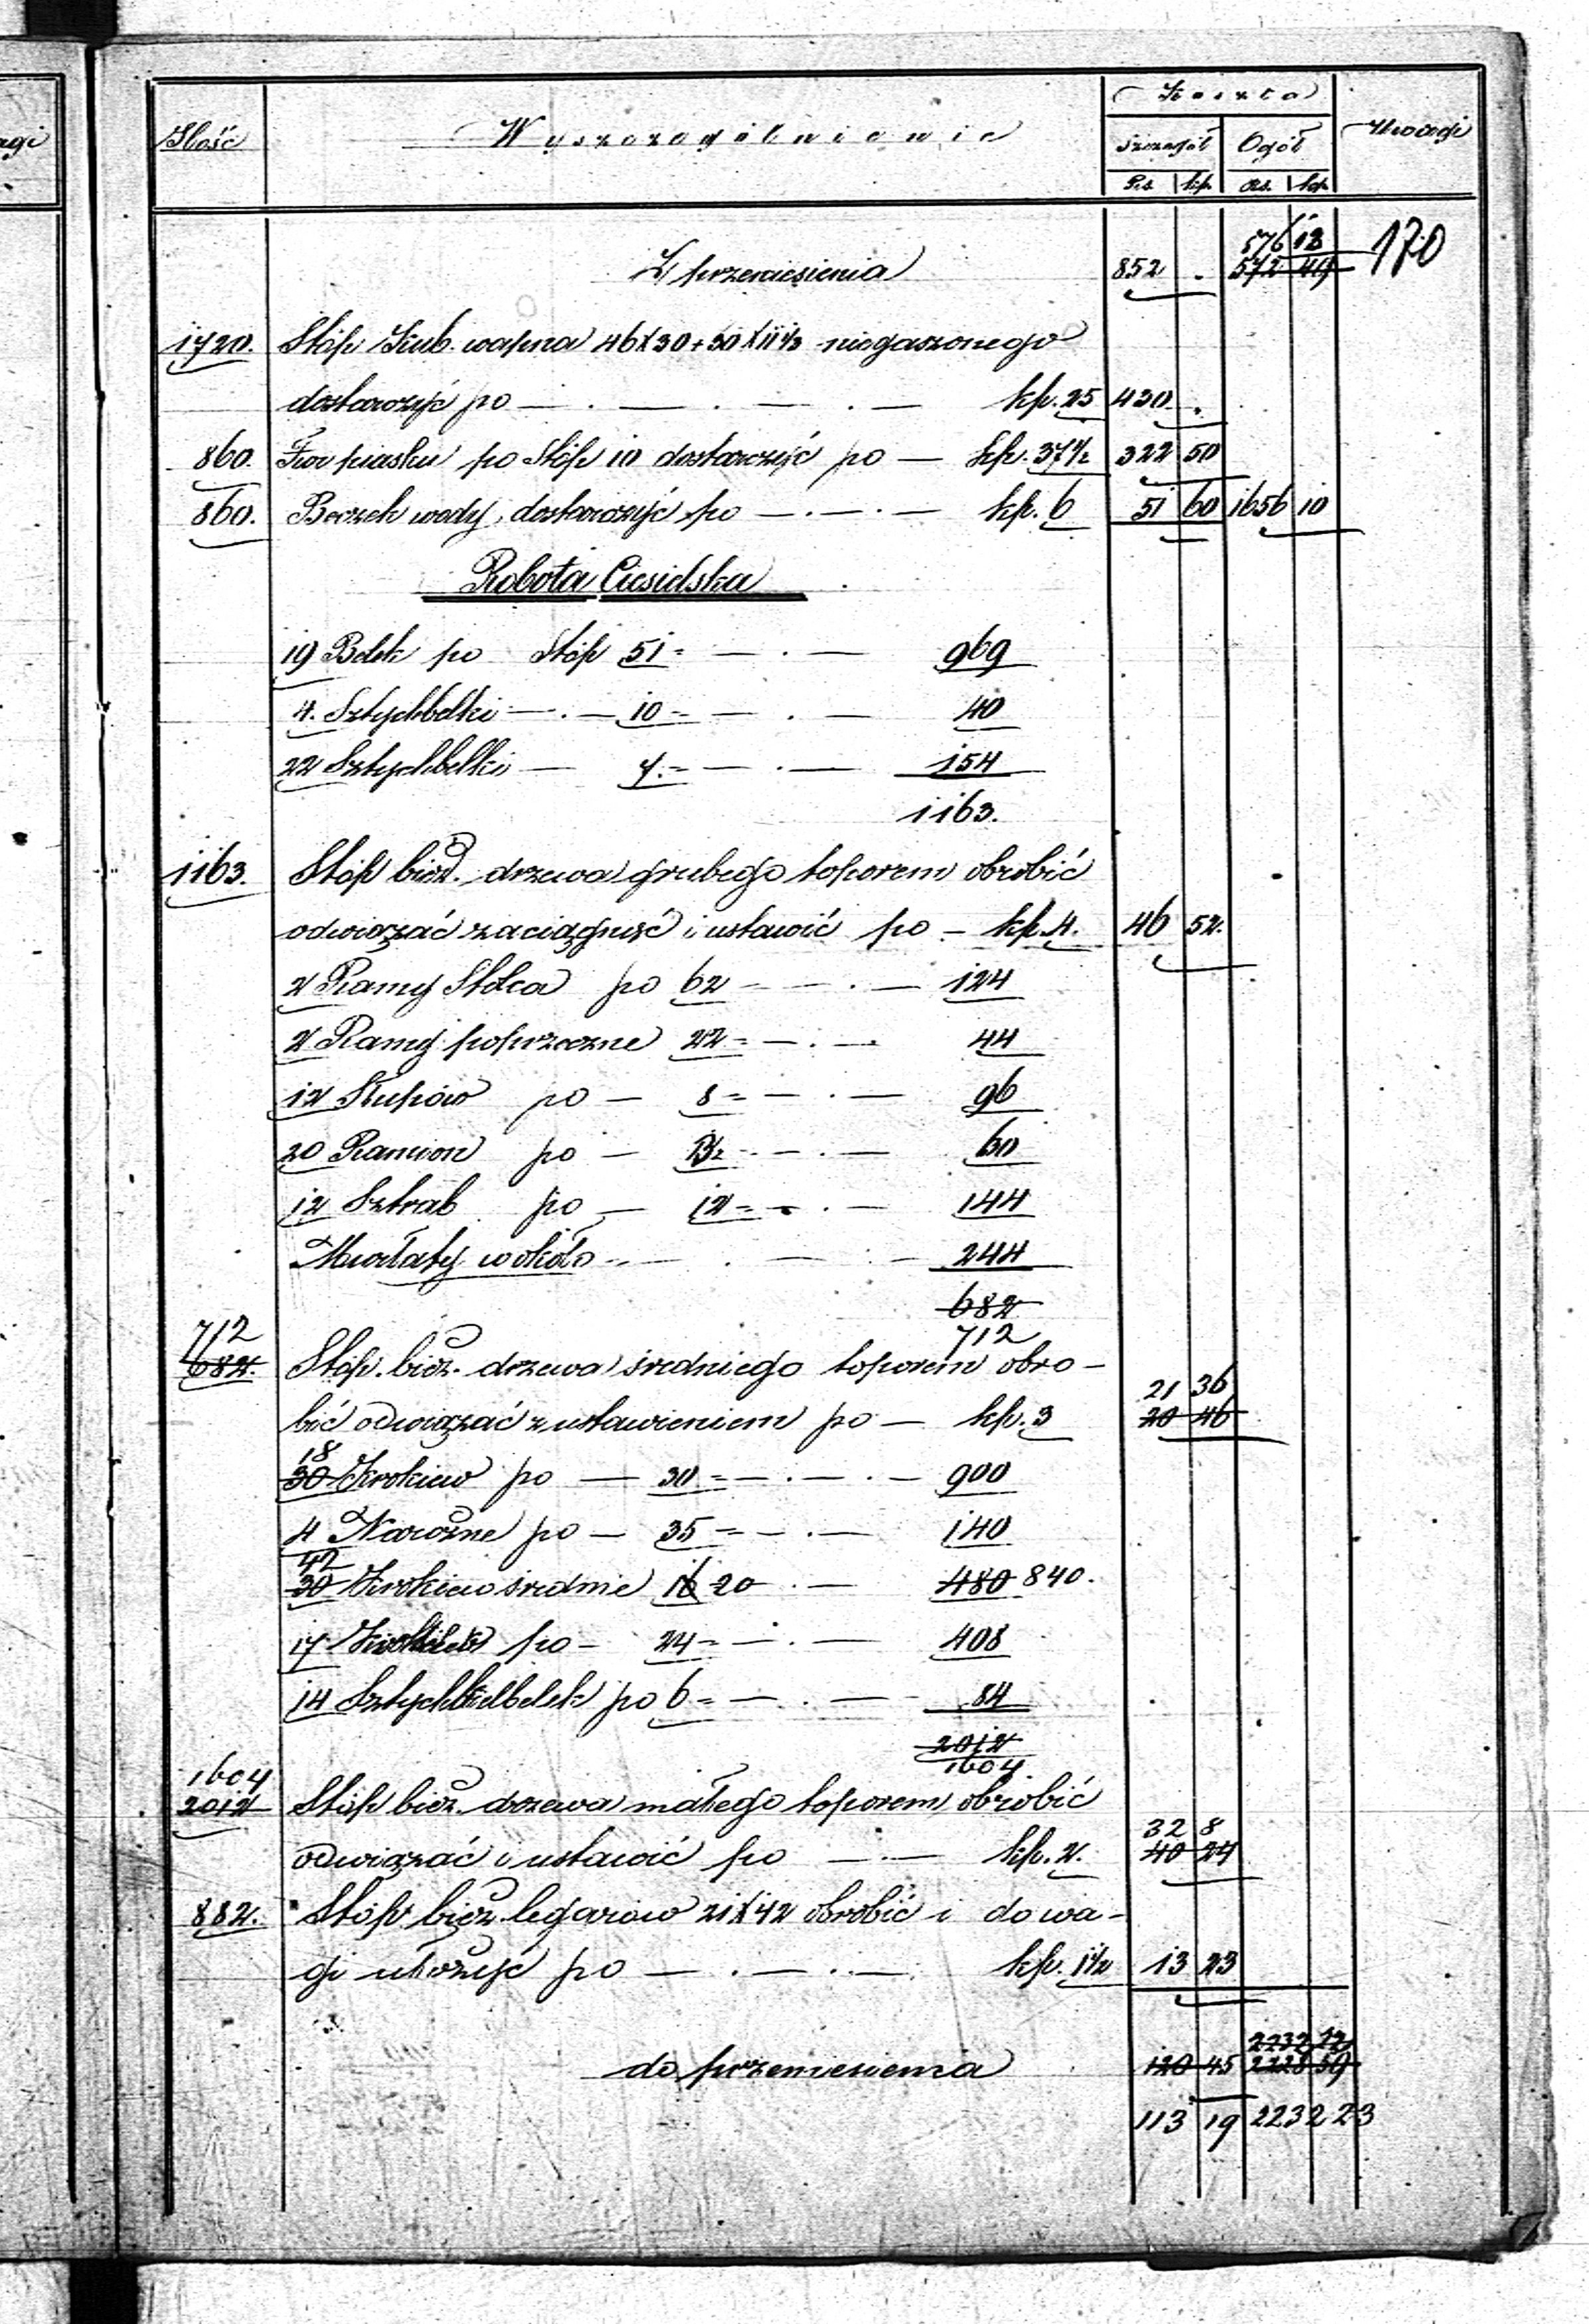 agi
Ilość Wyszczególnienie Koszta Uwagi
szczegół Ogół
Rs. kp. Rs. kp.
576 13
Z przeniesienia 852 . 572 49 170
1720. Stóp Kub. wapna 46X30+30X11⅓ niegaszonego
dostarczyć po — . — . — . — kp. 25 430 .
860. Fur piasku po Stóp 10 dostarczyć po — kp. 37½ 322 50
860. Beczek wody, dostarczyć po — . — . — kp. 6 51 60 1656 10
Robota Ciesielska
19 Belek po Stóp 51 = — . — 969
4. Sztychbelki — . — 10 = — . — 40
22 Sztychbelki — 7. = — . — 154
1163.
1163. Stóp bież. drzewa grubego toporem obrobić
odwiązać zaciągnąć i ustawić po — kp. 4. 46 52.
2 Ramy Stolca po 62 — . — 124
2 Ramy poprzeczne 22 = — . — 44
12 Słupów po — 8 = — . — 96
20 Ramion po — = — . — 60
12 Sztrab po — 12 = — . — 144
Murłaty wokoło — . — . — 244
682
712 712
682. Stóp. bież. drzewa średniego toporem obro-
21 36
bić odwiązać z ustawieniem po — kp. 3 20 46
18
30 Krokiew po — 30 = — . — . — 900
4 Narożne po — 35 = — . — 140
42
30 Krokiew średnie 16 20 . — 480 840.
17 po — 24 = — . — 408
14 po 6 = — . — 84
2012
1604 1604
2012 Stóp bież. drzewa małego toporem obrobić
32 8
odwiązać i ustawić po — . — kp. 2. 40 24
882. Stóp bież. legarów 21X42 obrobić i do wa-
gi ułożyć po — . — . — kp. 1½ 13 23
2232 22
do przeniesienia 120 45 2228 59
113 19 2232 23